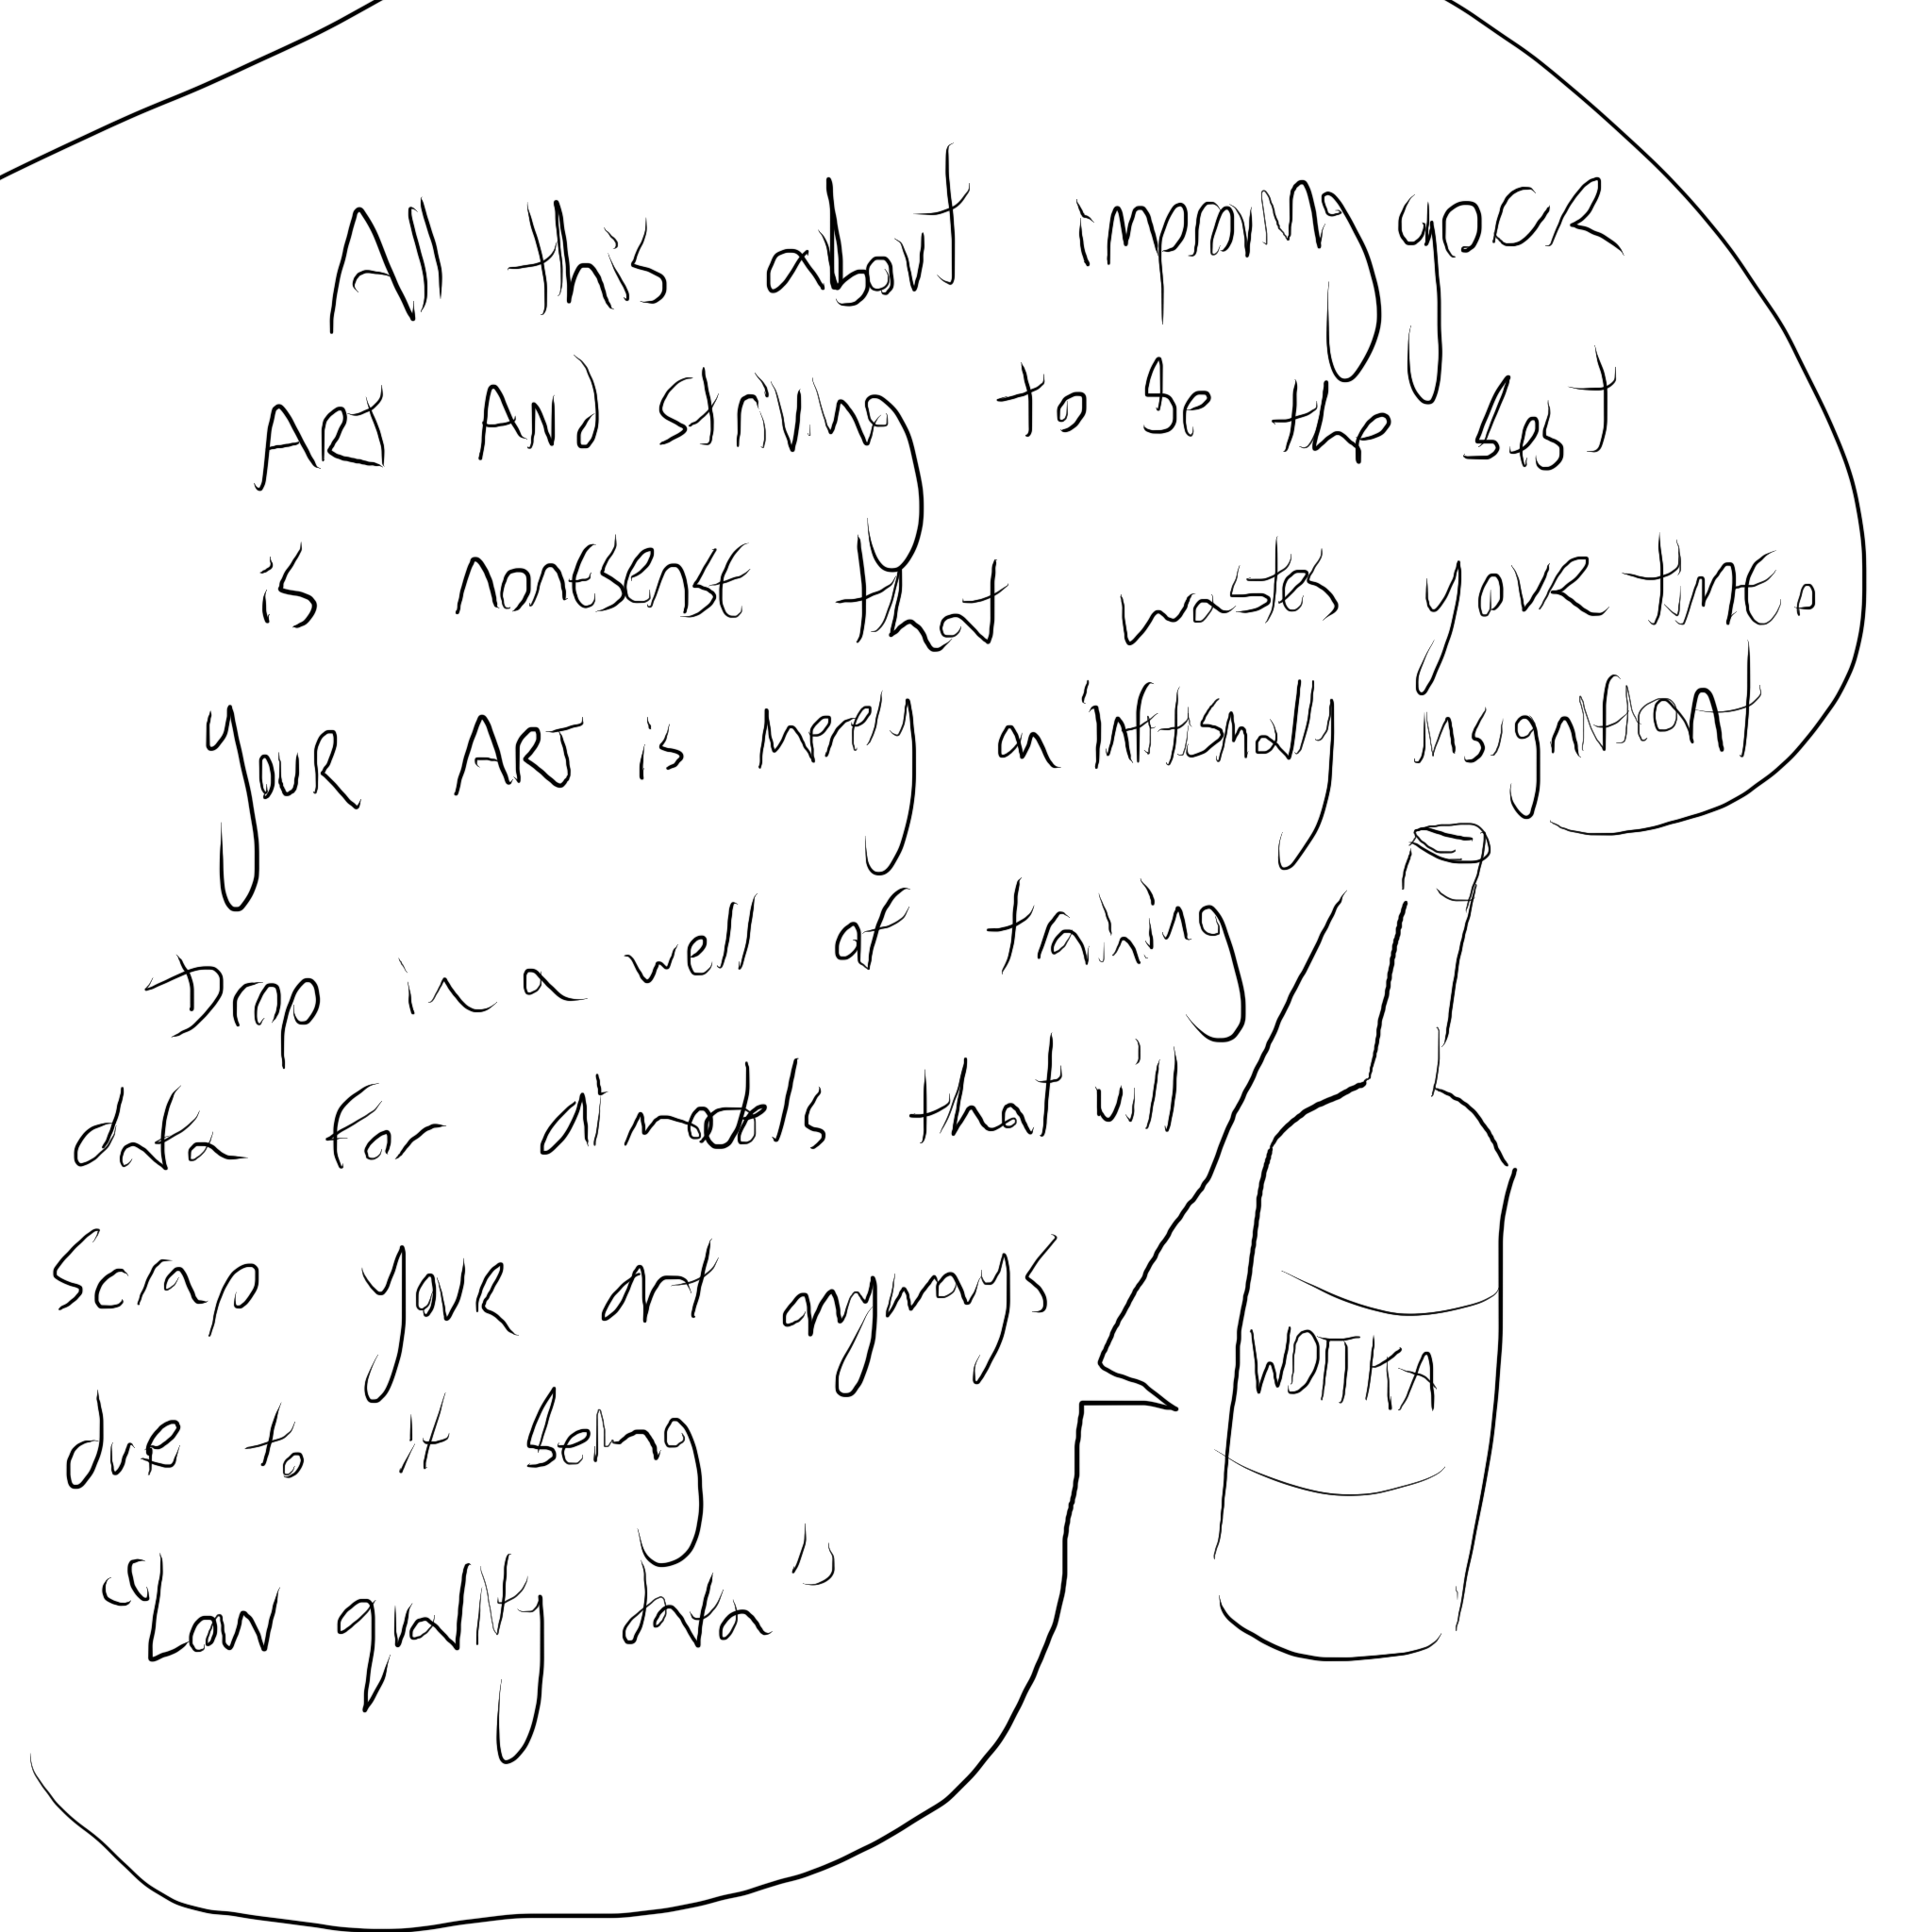 All this about improving your
Art And striving to be the best
is nonsense that wastes your time.
your ART is merely an infitismally insignificant
Drop in a well of training
data for ai models that will
Scrap your art anyways
due to it being
"Low quality data"
WOTTKA